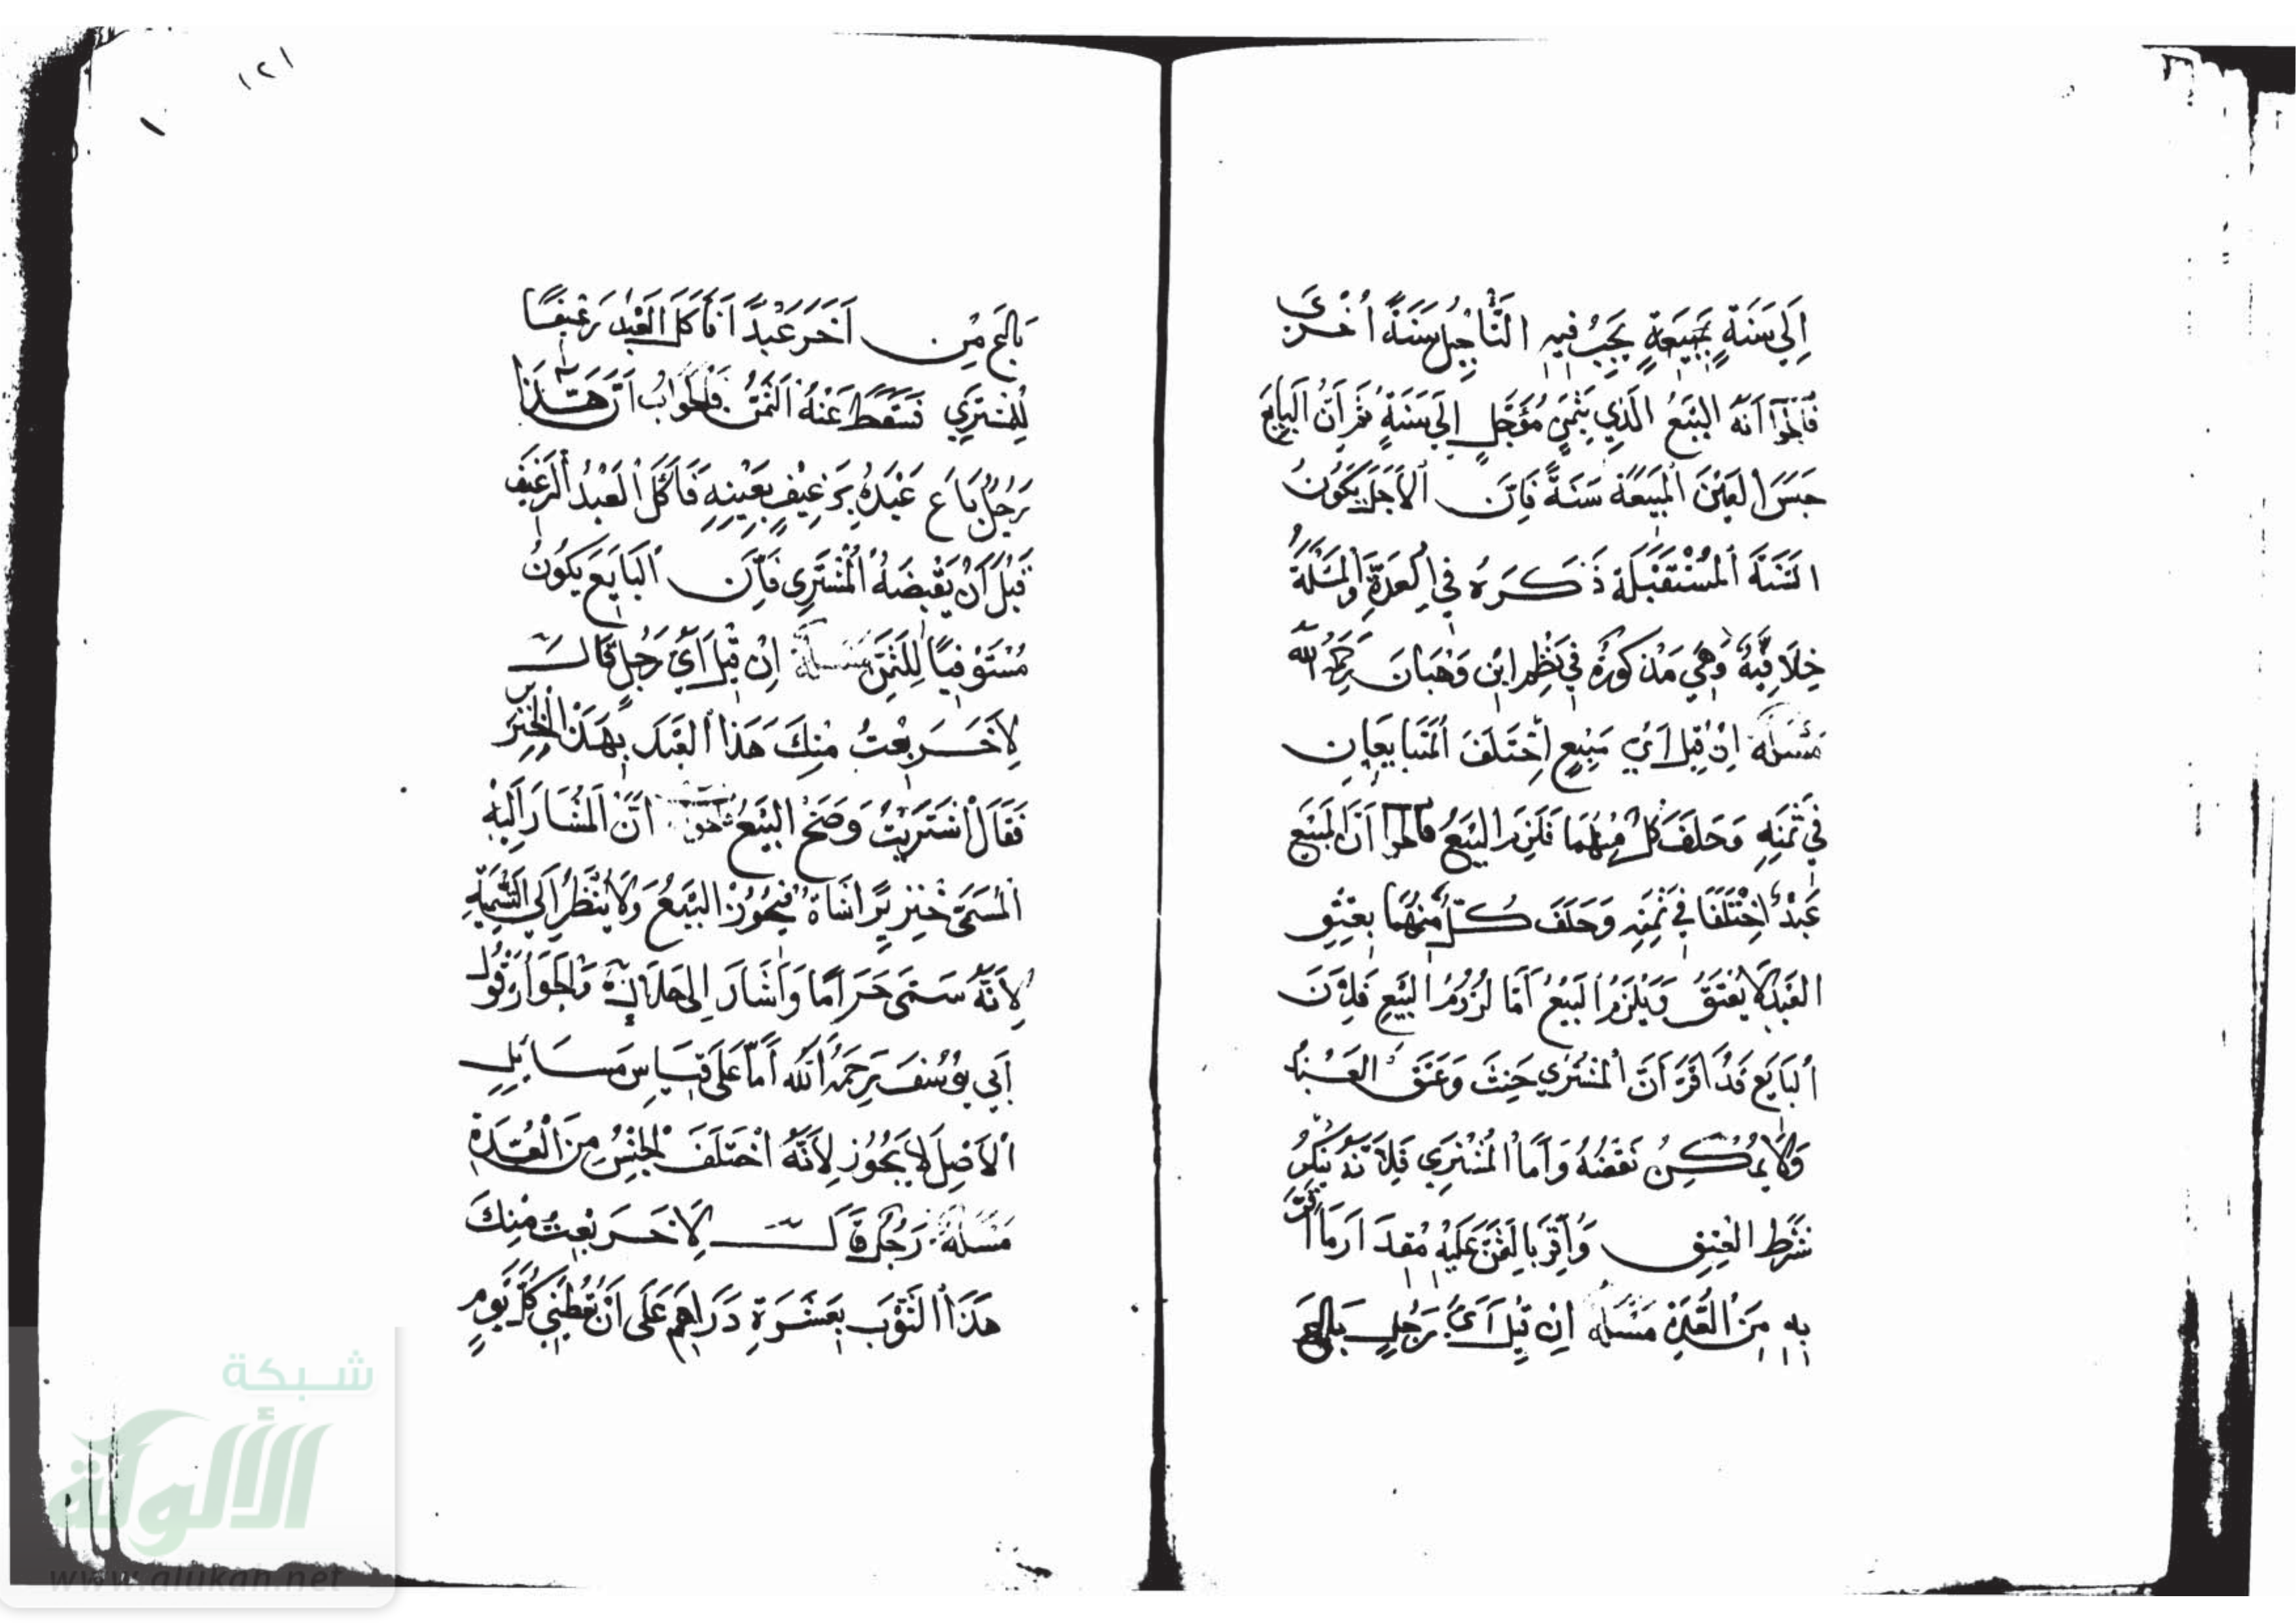 إِلَى سَنَةٍ بِمَبِيعَةٍ يَجِبُ فِيهِ التَّأْجِيلُ سَنَةً أُخْرَى
فَالْجَوَابُ أَنَّهُ الْبَيْعُ الَّذِي بِثَمَنٍ مُؤَجَّلٍ إِلَى سَنَةٍ ثُمَّ أَنَّ الْبَايِعَ
حَبَسَ الْعَيْنَ الْمَبِيعَةَ سَنَةً فَإِنَّ الْأَجَلَ يَكُونُ
السَّنَةَ الْمُسْتَقْبَلَةَ ذَكَرَهُ فِي الْعُدَّةِ وَالْمَسْئَلَةُ
خِلَافِيَّةٌ وَهِيَ مَذْكُورَةٌ فِي نَظْمِ ابْنِ وَهْبَانَ رَحِمَهُ اللَّهُ
مَسْئَلَة إِنْ قِيلَ أَيُّ مَبِيعٍ اخْتَلَفَ الْمُتَبَايِعَانِ
فِي ثَمَنِهِ وَحَلَفَ كُلٌّ مِنْهُمَا فَلَزِمَ الْبَيْعُ فَالْجَوَابُ أَنَّ الْمَبِيعَ
عَبْدٌ اخْتَلَفَا فِي ثَمَنِهِ وَحَلَفَ كُلٌّ مِنْهُمَا بِعِتْقِ
الْعَبْدِ لَا يُعْتَقُ وَيَلْزَمُ الْبَيْعُ أَمَّا لُزُومُ الْبَيْعِ فَلِأَنَّ
الْبَايِعَ قَدْ أَقَرَّ أَنَّ الْمُشْتَرِيَ حَنِثَ وَعَتَقَ الْعَبْدُ
وَلَا يُمْكِنُ نَقْضُهُ وَأَمَّا الْمُشْتَرِي فَلِأَنَّهُ يُنْكِرُ
شَرْطَ الْعِتْقِ وَأَقَرَّ بِالثَّمَنِ عَلَيْهِ مِقْدَارَ مَا أَقَرَّ
بِهِ مِنَ الْعُدَّةِ مَسْئَلَة إِنْ قِيلَ أَيُّ رَجُلٍ بَاعَ
بَاعَ مِنْ آخَرَ عَبْدًا فَأَكَلَ الْعَبْدُ رَغِيفًا
لِلْمُشْتَرِي فَسَقَطَ عَنْهُ الثَّمَنُ فَالْجَوَابُ أَنَّ هَذَا
رَجُلٌ بَاعَ عَبْدَهُ بِرَغِيفٍ بِعَيْنِهِ فَأَكَلَ الْعَبْدُ الرَّغِيفَ
قَبْلَ أَنْ يَقْبِضَهُ الْمُشْتَرِي فَإِنَّ الْبَايِعَ يَكُونُ
مُسْتَوْفِيًا لِلثَّمَنِ مَسْئَلَة إِنْ قِيلَ أَيُّ رَجُلٍ قَالَ
لِآخَرَ بِعْتُ مِنْكَ هَذَا الْعَبْدَ بِهَذَا الْخِنْزِيرِ
فَقَالَ اشْتَرَيْتُ وَصَحَّ الْبَيْعُ فَالْجَوَابُ أَنَّ الْمُشَارَ إِلَيْهِ
الْمُسَمَّى خِنْزِيرًا شَاةٌ فَيَجُوزُ الْبَيْعُ وَلَا يُنْظَرُ إِلَى التَّسْمِيَةِ
لِأَنَّهُ سَمَّى حَرَامًا وَأَشَارَ إِلَى حَلَالٍ وَالْجَوَازُ قَوْلُ
أَبِي يُوسُفَ رَحِمَهُ اللَّهُ أَمَّا عَلَى قِيَاسِ مَسَايِلِ
الْأَصْلِ لَا يَجُوزُ لِأَنَّهُ اخْتَلَفَ الْجِنْسُ مِنَ الْعُدَّةِ
مَسْئَلَة رَجُلٌ قَالَ لِآخَرَ بِعْتُ مِنْكَ
هَذَا الثَّوْبَ بِعَشَرَةِ دَرَاهِمَ عَلَى أَنْ تُعْطِيَنِي كُلَّ يَوْمٍ
١٢١
شبكة
الألوكة
www.alukah.net